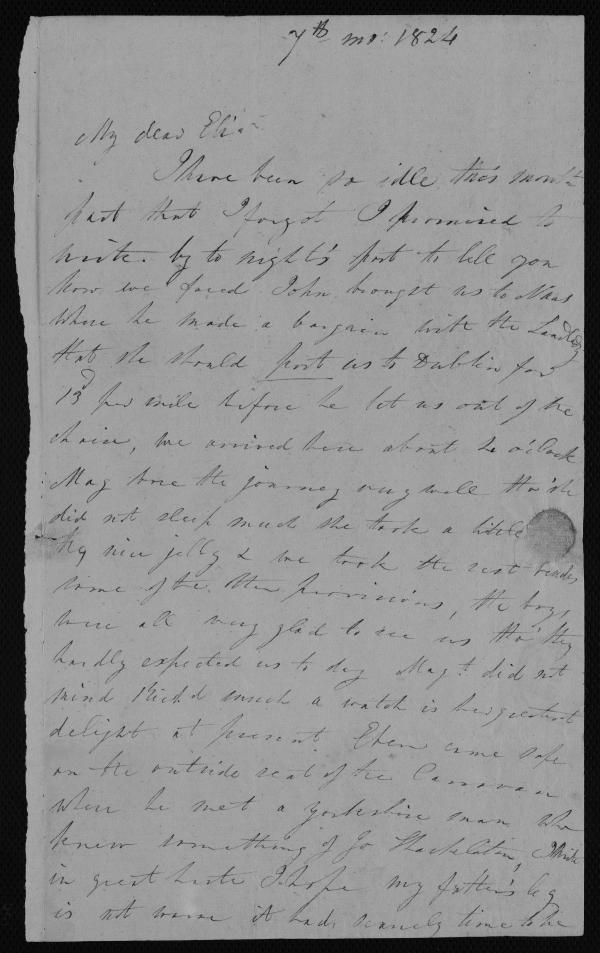 7th mo: 1824
My dear Eliza
I have been so idle this month
past that I forgot I promised to
write by to night's post to tell you
how we fared John brought us to Naas
where he made a bargain with the Landlady
that she should post us to Dublin for
13d per mile before he let us out of the
chaise, we arrived here about 2 o'Clock
Mag bore the journey very well tho' she
did not sleep much she took a little
thy nice jelly & we took the rest besides
some of the other provisions, the boys
were all very glad to see us tho' they
hardly expected us to day Magt did not
mind Richd much a watch is her greatest
delight at present Eben came safe
on the outside seat of the Caravan
where he met a yorkshire man who
knew something of Jo Shackleton, I write
in great haste I hope my father's leg
is not worse it had scarcely time to be